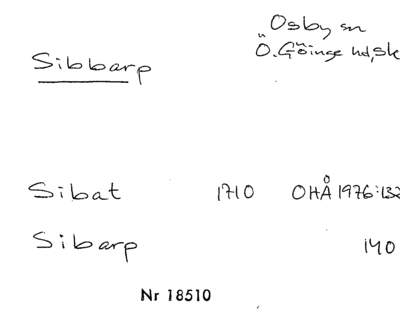 Osby sn
Ö. Göinge hd, Sk
Sibbarp
Sibat 1710 OHÅ 1976:132
Sibarp 140
Nr 18510